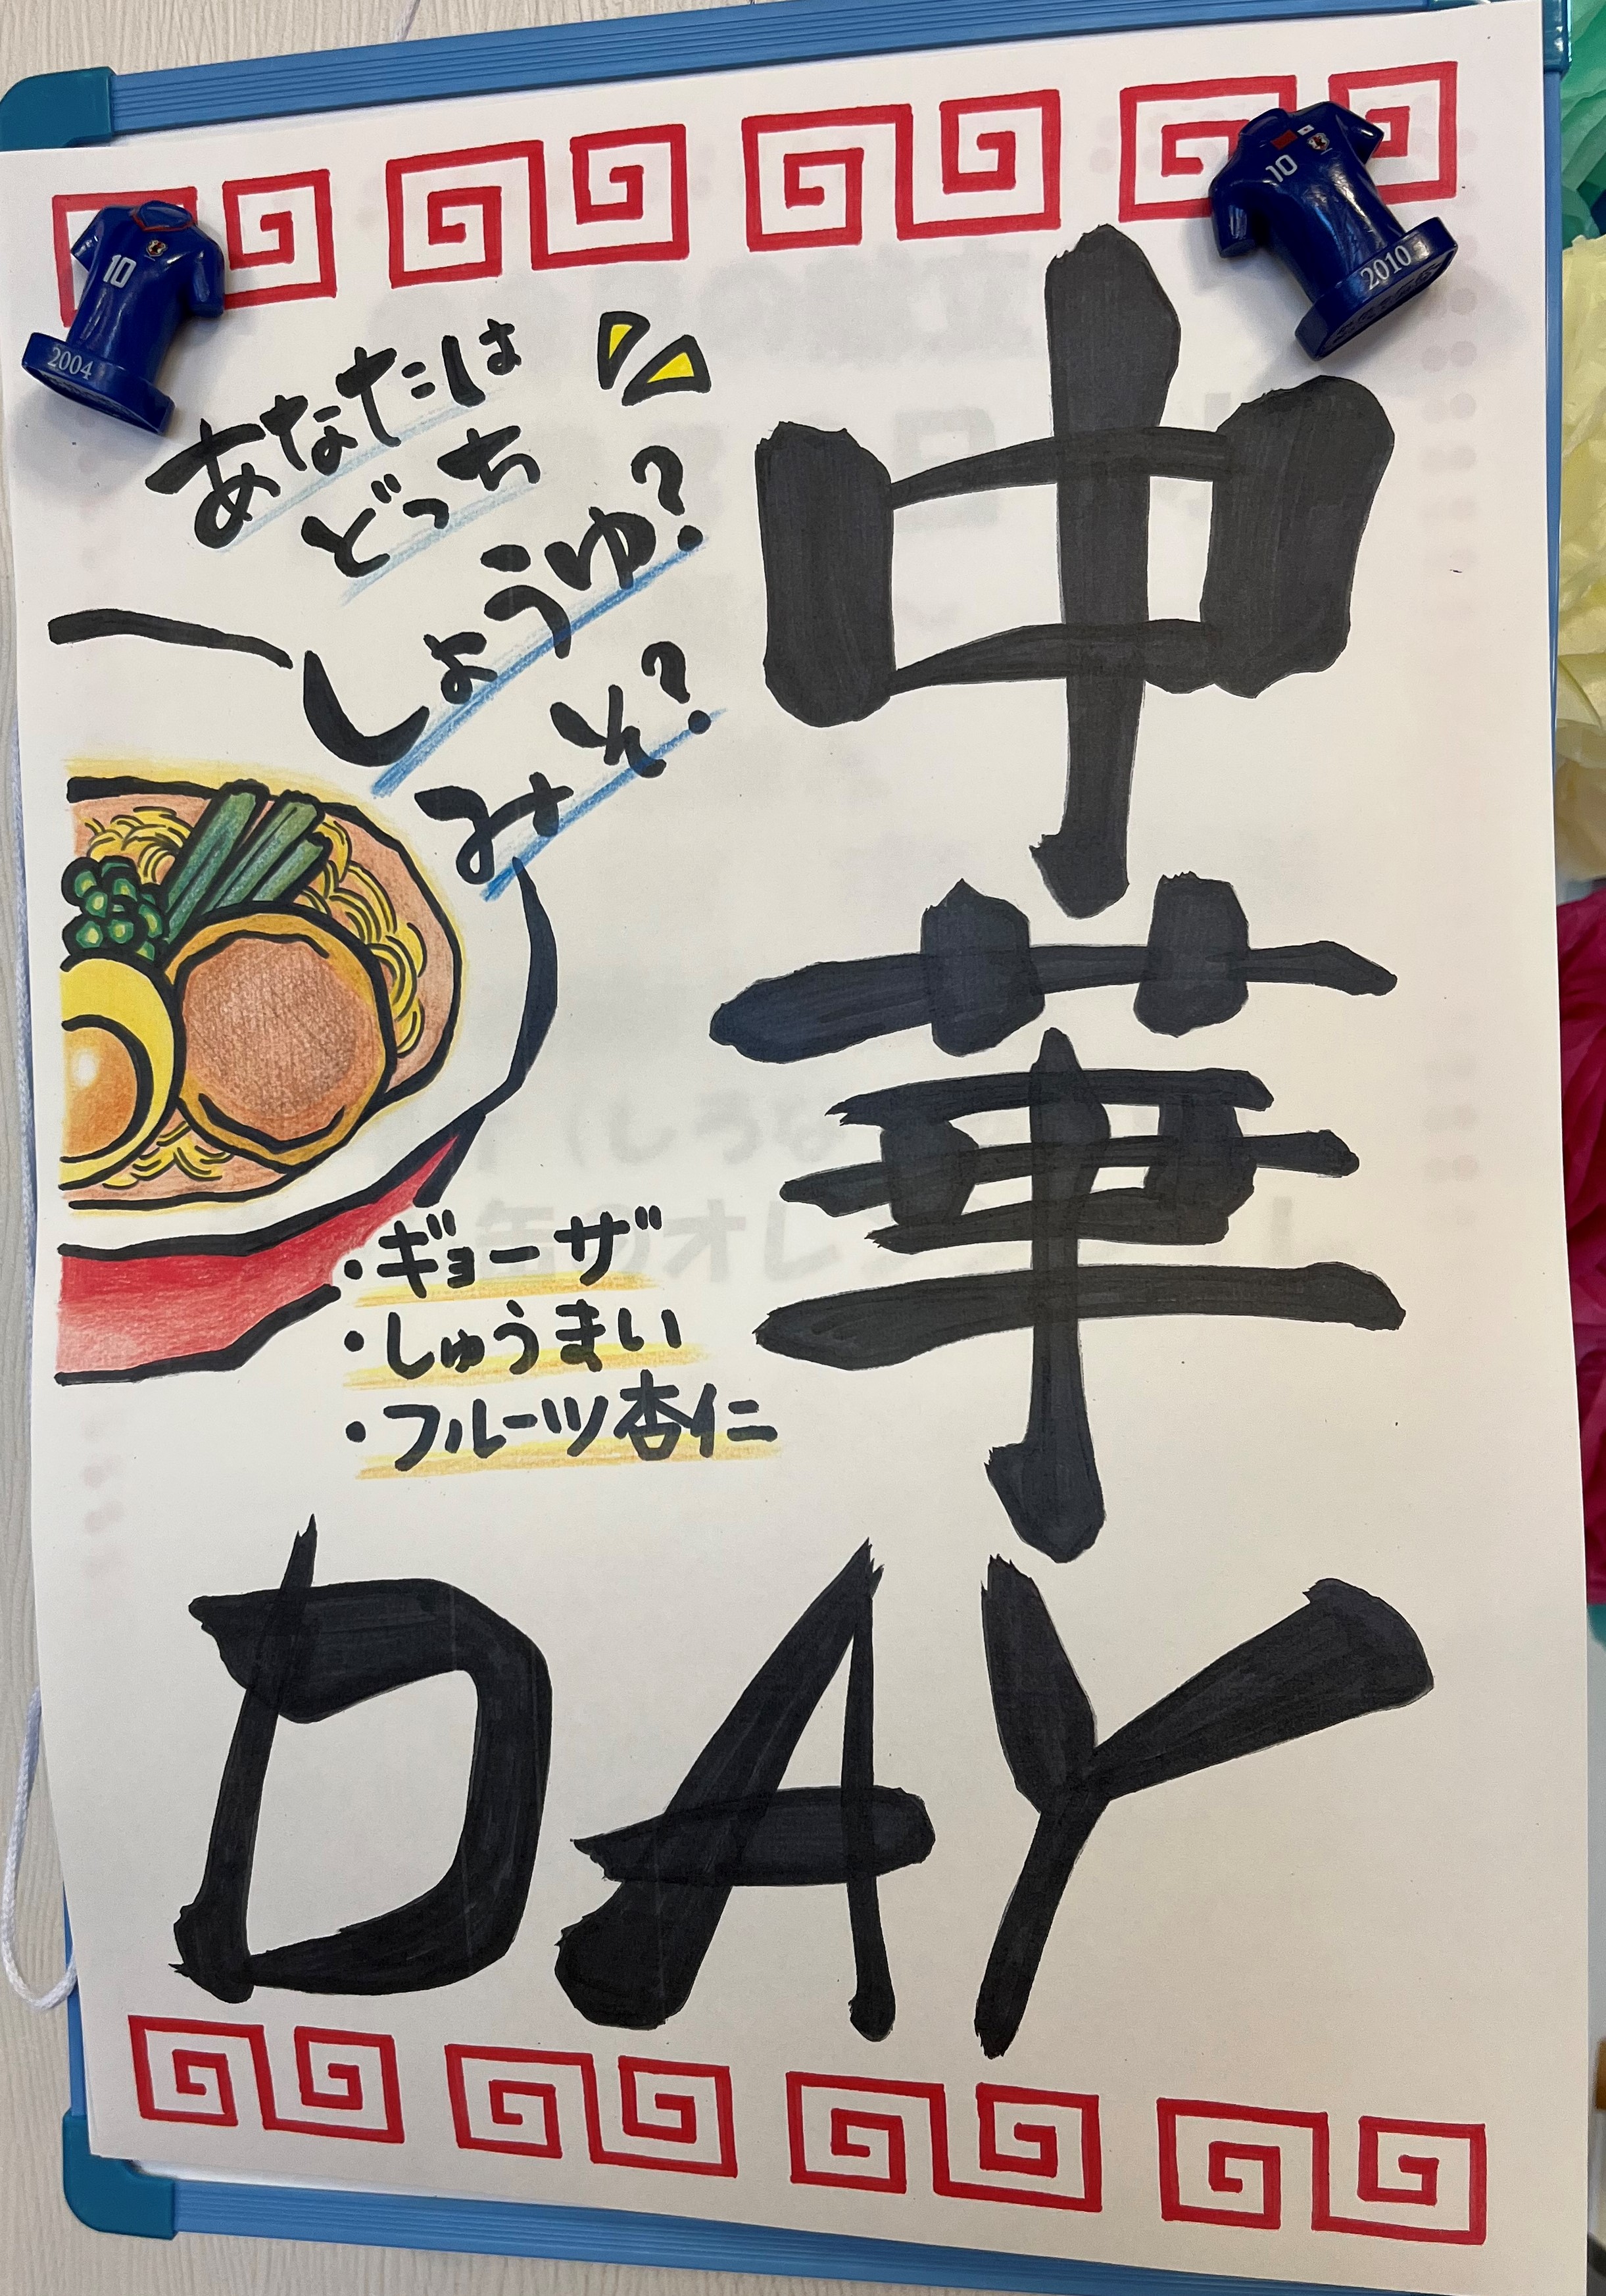 中華
DAY
あなたは
どっち
しょうゆ?
みそ?
・ギョーザ
・しゅうまい
・フルーツ杏仁
10
2004
10
2010